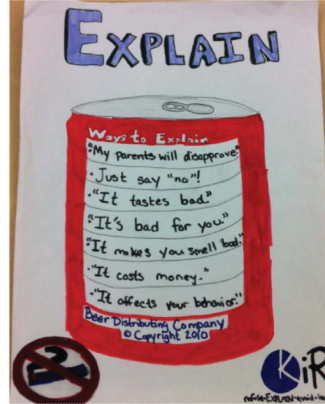 EXPLAIN
Ways to Explain
"My parents will disapprove"
· Just say "no"!
· "It tastes bad."
· "It's bad for you."
"It makes you smell bad."
· "It costs money."
· "It affects your behavior."
Beer Distributing Company
© Copyright 2010
KiR